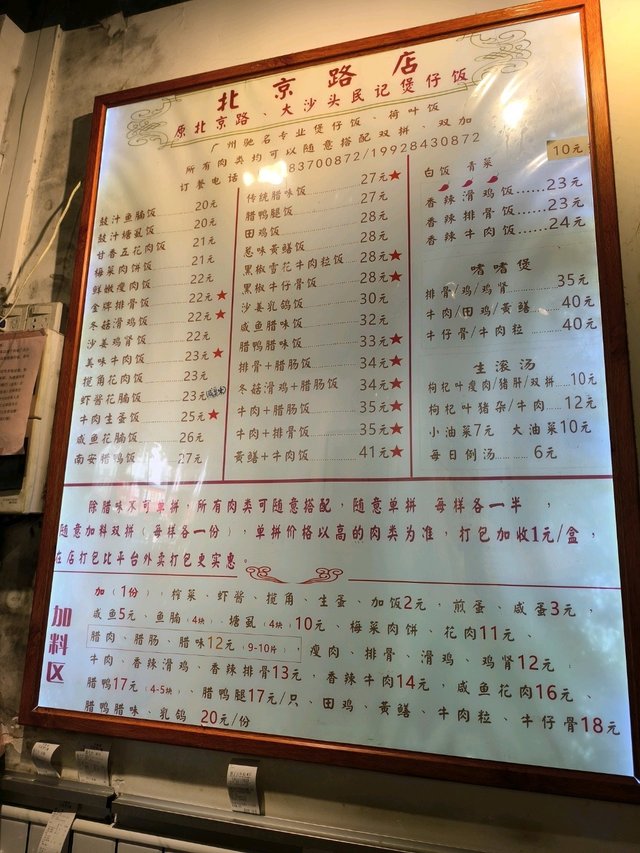 北京路店
原北京路、大沙头民记煲仔饭
广州驰名专业煲仔饭、荷叶饭
所有肉类均可以随意搭配双拼、双加
订餐电话 83700872/19928430872
豉汁鱼腩饭 20元
豉汁塘虱饭 20元
甘香五花肉饭 21元
梅菜肉饼饭 21元
鲜嫩瘦肉饭 22元
金牌排骨饭 22元★
冬菇滑鸡饭 22元★
沙姜鸡肾饭 22元
美味牛肉饭 23元★
榄角花肉饭 23元
虾酱花腩饭 23元
牛肉生蛋饭 25元★
咸鱼花腩饭 26元
南安腊鸭饭 27元
传统腊味饭 27元★
腊鸭腿饭 27元
田鸡饭 28元
惹味黄鳝饭 28元
黑椒雪花牛肉粒饭 28元★
黑椒牛仔骨饭 28元★
沙姜乳鸽饭 30元
咸鱼腊味饭 32元
腊鸭腊味饭 33元★
排骨+腊肠饭 34元★
冬菇滑鸡+腊肠饭 34元★
牛肉+腊肠饭 35元★
牛肉+排骨饭 35元★
黄鳝+牛肉饭 41元★
白饭 青菜 10元
香辣滑鸡饭......23元
香辣排骨饭......23元
香辣牛肉饭......24元
啫啫煲
排骨/鸡/鸡肾 35元
牛肉/田鸡/黄鳝 40元
牛仔骨/牛肉粒 40元
生滚汤
枸杞叶瘦肉/猪肝/双拼....10元
枸杞叶猪杂/牛肉....12元
小油菜7元 大油菜10元
每日例汤...... 6元
除腊味不可单拼，所有肉类可随意搭配，随意单拼 每样各一半，
随意加料双拼（每样各一份），单拼价格以高的肉类为准，打包加收1元/盒，
在店打包比平台外卖打包更实惠。
加料区
加（1份）：榨菜、虾酱、榄角、生蛋、加饭2元，煎蛋、咸蛋3元，
咸鱼5元、鱼腩（4块）、塘虱（4块）10元、梅菜肉饼、花肉11元、
腊肉、腊肠、腊味12元（9-10片），瘦肉、排骨、滑鸡、鸡肾12元，
牛肉、香辣滑鸡、香辣排骨13元，香辣牛肉14元，咸鱼花肉16元，
腊鸭17元（4-5块）、腊鸭腿17元/只、田鸡、黄鳝、牛肉粒、牛仔骨18元
腊鸭腊味、乳鸽 20元/份